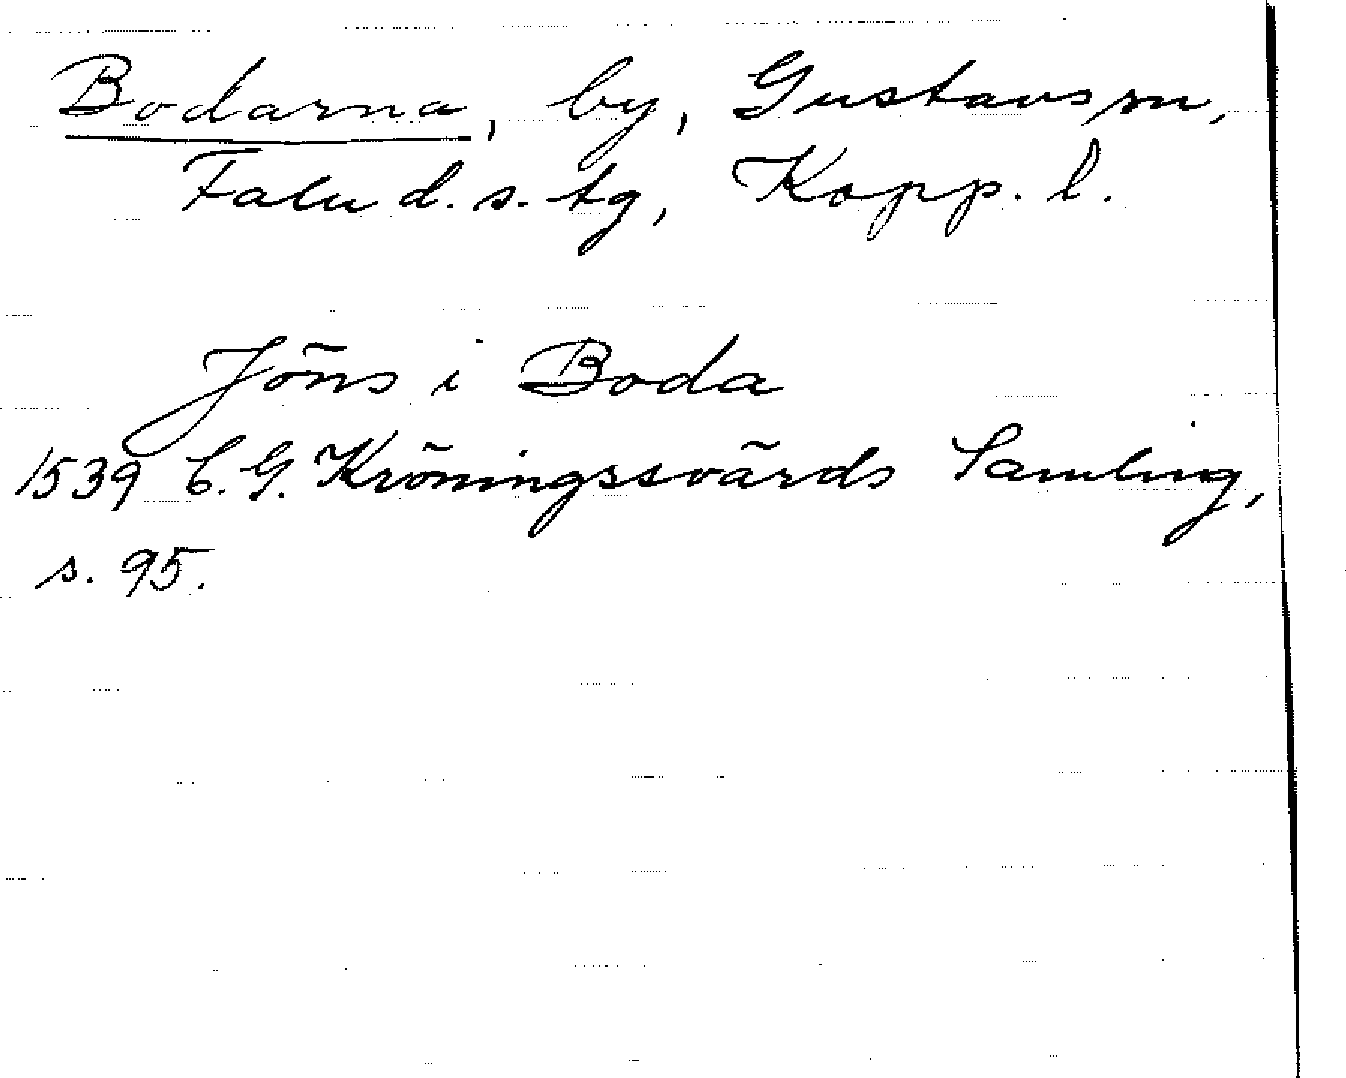 Bodarna, by, Gustavs sn,
Falu d. s. tg, Kopp. l.
Jöns i Boda
1539 C. G. Kröningssvärds Samling,
s. 95.